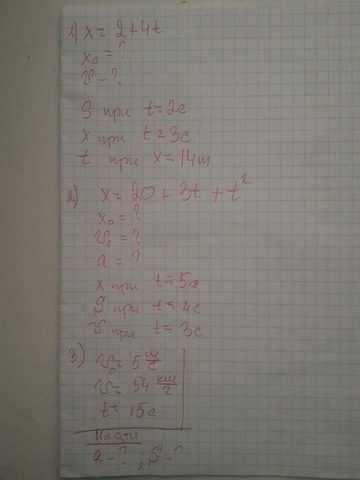 1) x = 2+4t
x₀ = ?
v - ?
S при t=2с
x при t=3с
t при x=14м
2) x = 20 + 3t + t²
x₀ = ?
v₀ = ?
a = ?
x при t=5с
S при t=4с
v при t=3с
3) v₀= 5 м/с
v= 54 км/г
t= 15с
Найти
a - ? ; S - ?